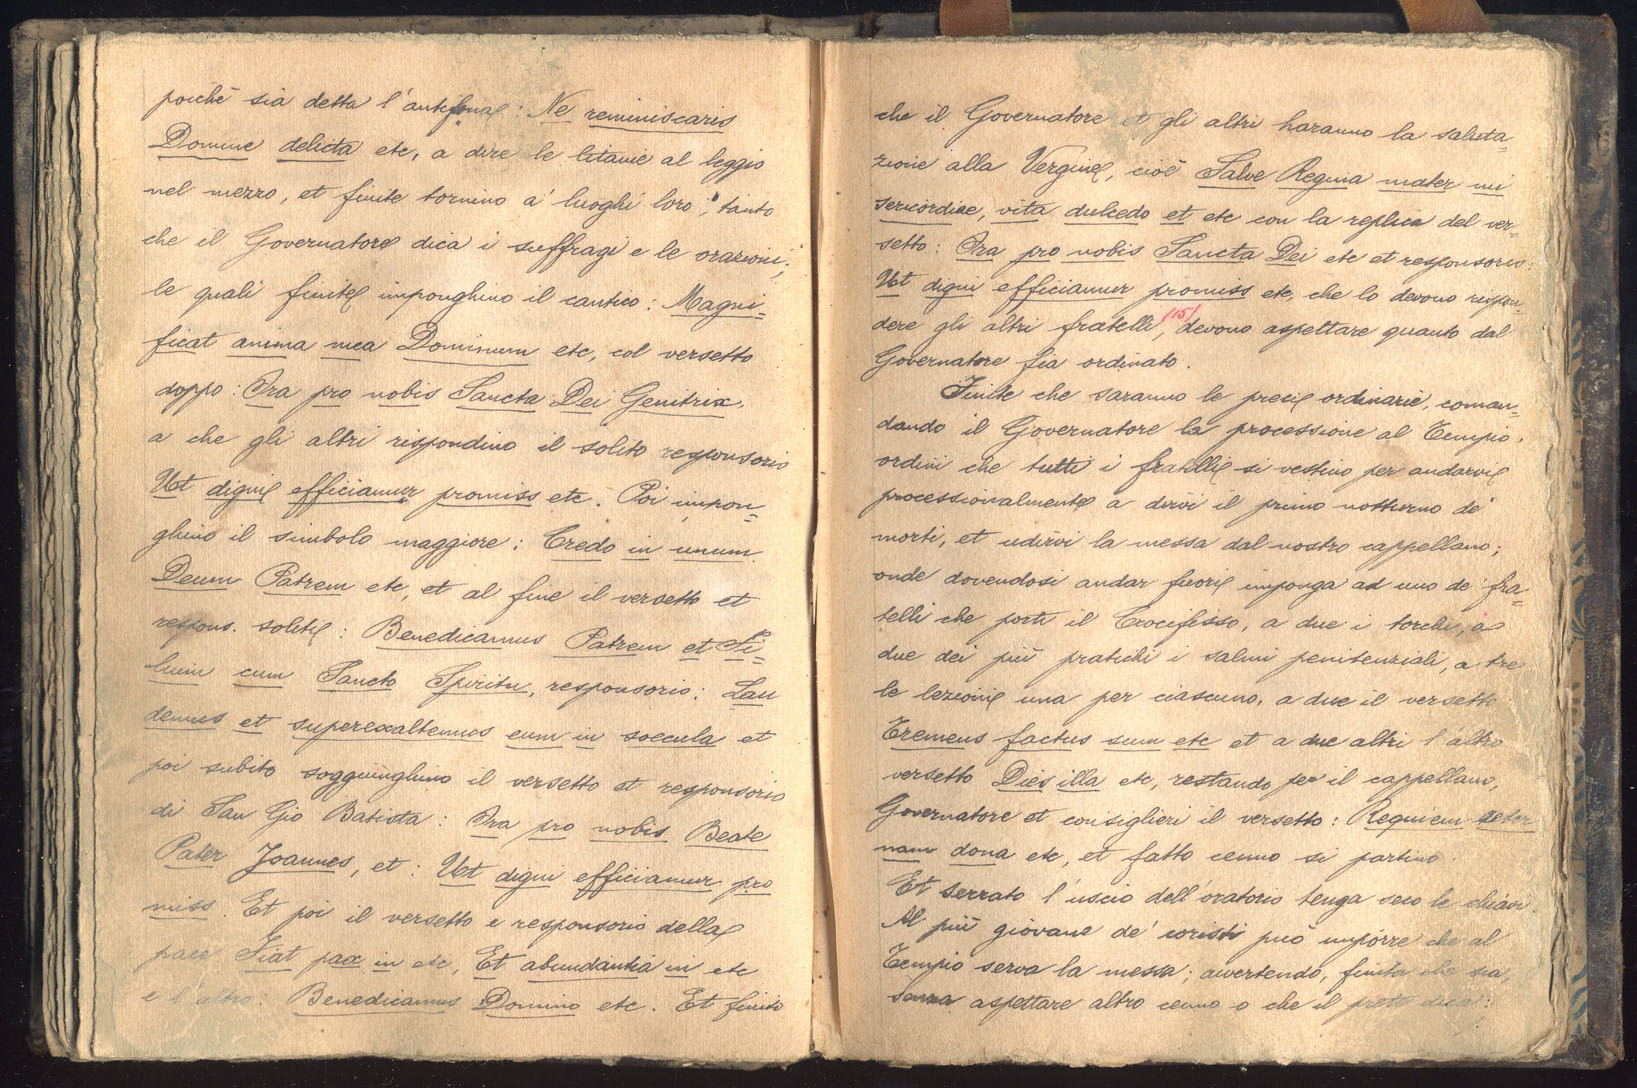 poichè sia detta l'antifona: Ne reminiscaris
Domine delicta etc, a dire le litanie al leggio
nel mezzo, et finite tornino a' luoghi loro, tanto
che il Governatore dica i suffragi e le orazioni;
le quali finite imponghino il cantico: Magni=
ficat anima mea Dominum etc, col versetto
doppo: Ora pro nobis Sancta Dei Genitrix,
a che gli altri rispondino il solito responsorio
Ut digni efficiamur promiss etc. Poi impon=
ghino il simbolo maggiore: Credo in unum
Deum Patrem etc, et al fine il versetto et
respons. solite: Benedicamus Patrem et Fi=
lium cum Sancto Spiritu, responsorio: Lau
demus et superexaltemus eum in soecula et
poi subito sogguinghino il versetto et responsorio
di San Gio Batista: Ora pro nobis Beate
Pater Joannes, et: Ut digni efficiamur pro
miss. Et poi il versetto e responsorio della
pace Fiat pax in etc, Et abundantia in etc
e l'altro: Benedicamus Domino etc. Et finito
che il Governatore et gli altri haranno la saluta=
zione alla Vergine, cioè Salve Regina mater mi
sericordiae, vita dulcedo et etc con la replica del ver=
setto: Ora pro nobis Sancta Dei etc et responsorio:
Ut digni efficiamur promiss etc, che lo devono rispon
dere gli altri fratelli (15), devono aspettare quanto dal
Governatore fia ordinato.
Finite che saranno le preci ordinarie, coman=
dando il Governatore la processione al Tempio,
ordini che tutti i fratelli si vestino per andarvi
processionalmente a dirvi il primo notturno de'
morti, et udirvi la messa dal nostro cappellano;
onde dovendosi andar fuori imponga ad uno de' fra=
telli che porti il Crocifisso, a due i torchi, a
due dei più pratichi i salmi penitenziali, a tre
le lezioni una per ciascuno, a due il versetto
Tremens factus sum etc et a due altri l'altro
versetto Dies illa etc, restando per il cappellano,
Governatore et consiglieri il versetto: Requiem aeter
nam dona etc, et fatto cenno si partino.
Et serrato l'uscio dell'oratorio tenga seco le chiavi.
Al più giovane de' coristi può imporre che al
Tempio serva la messa; avvertendo, finita che sia,
senza aspettare altro cenno o che il prete dica: